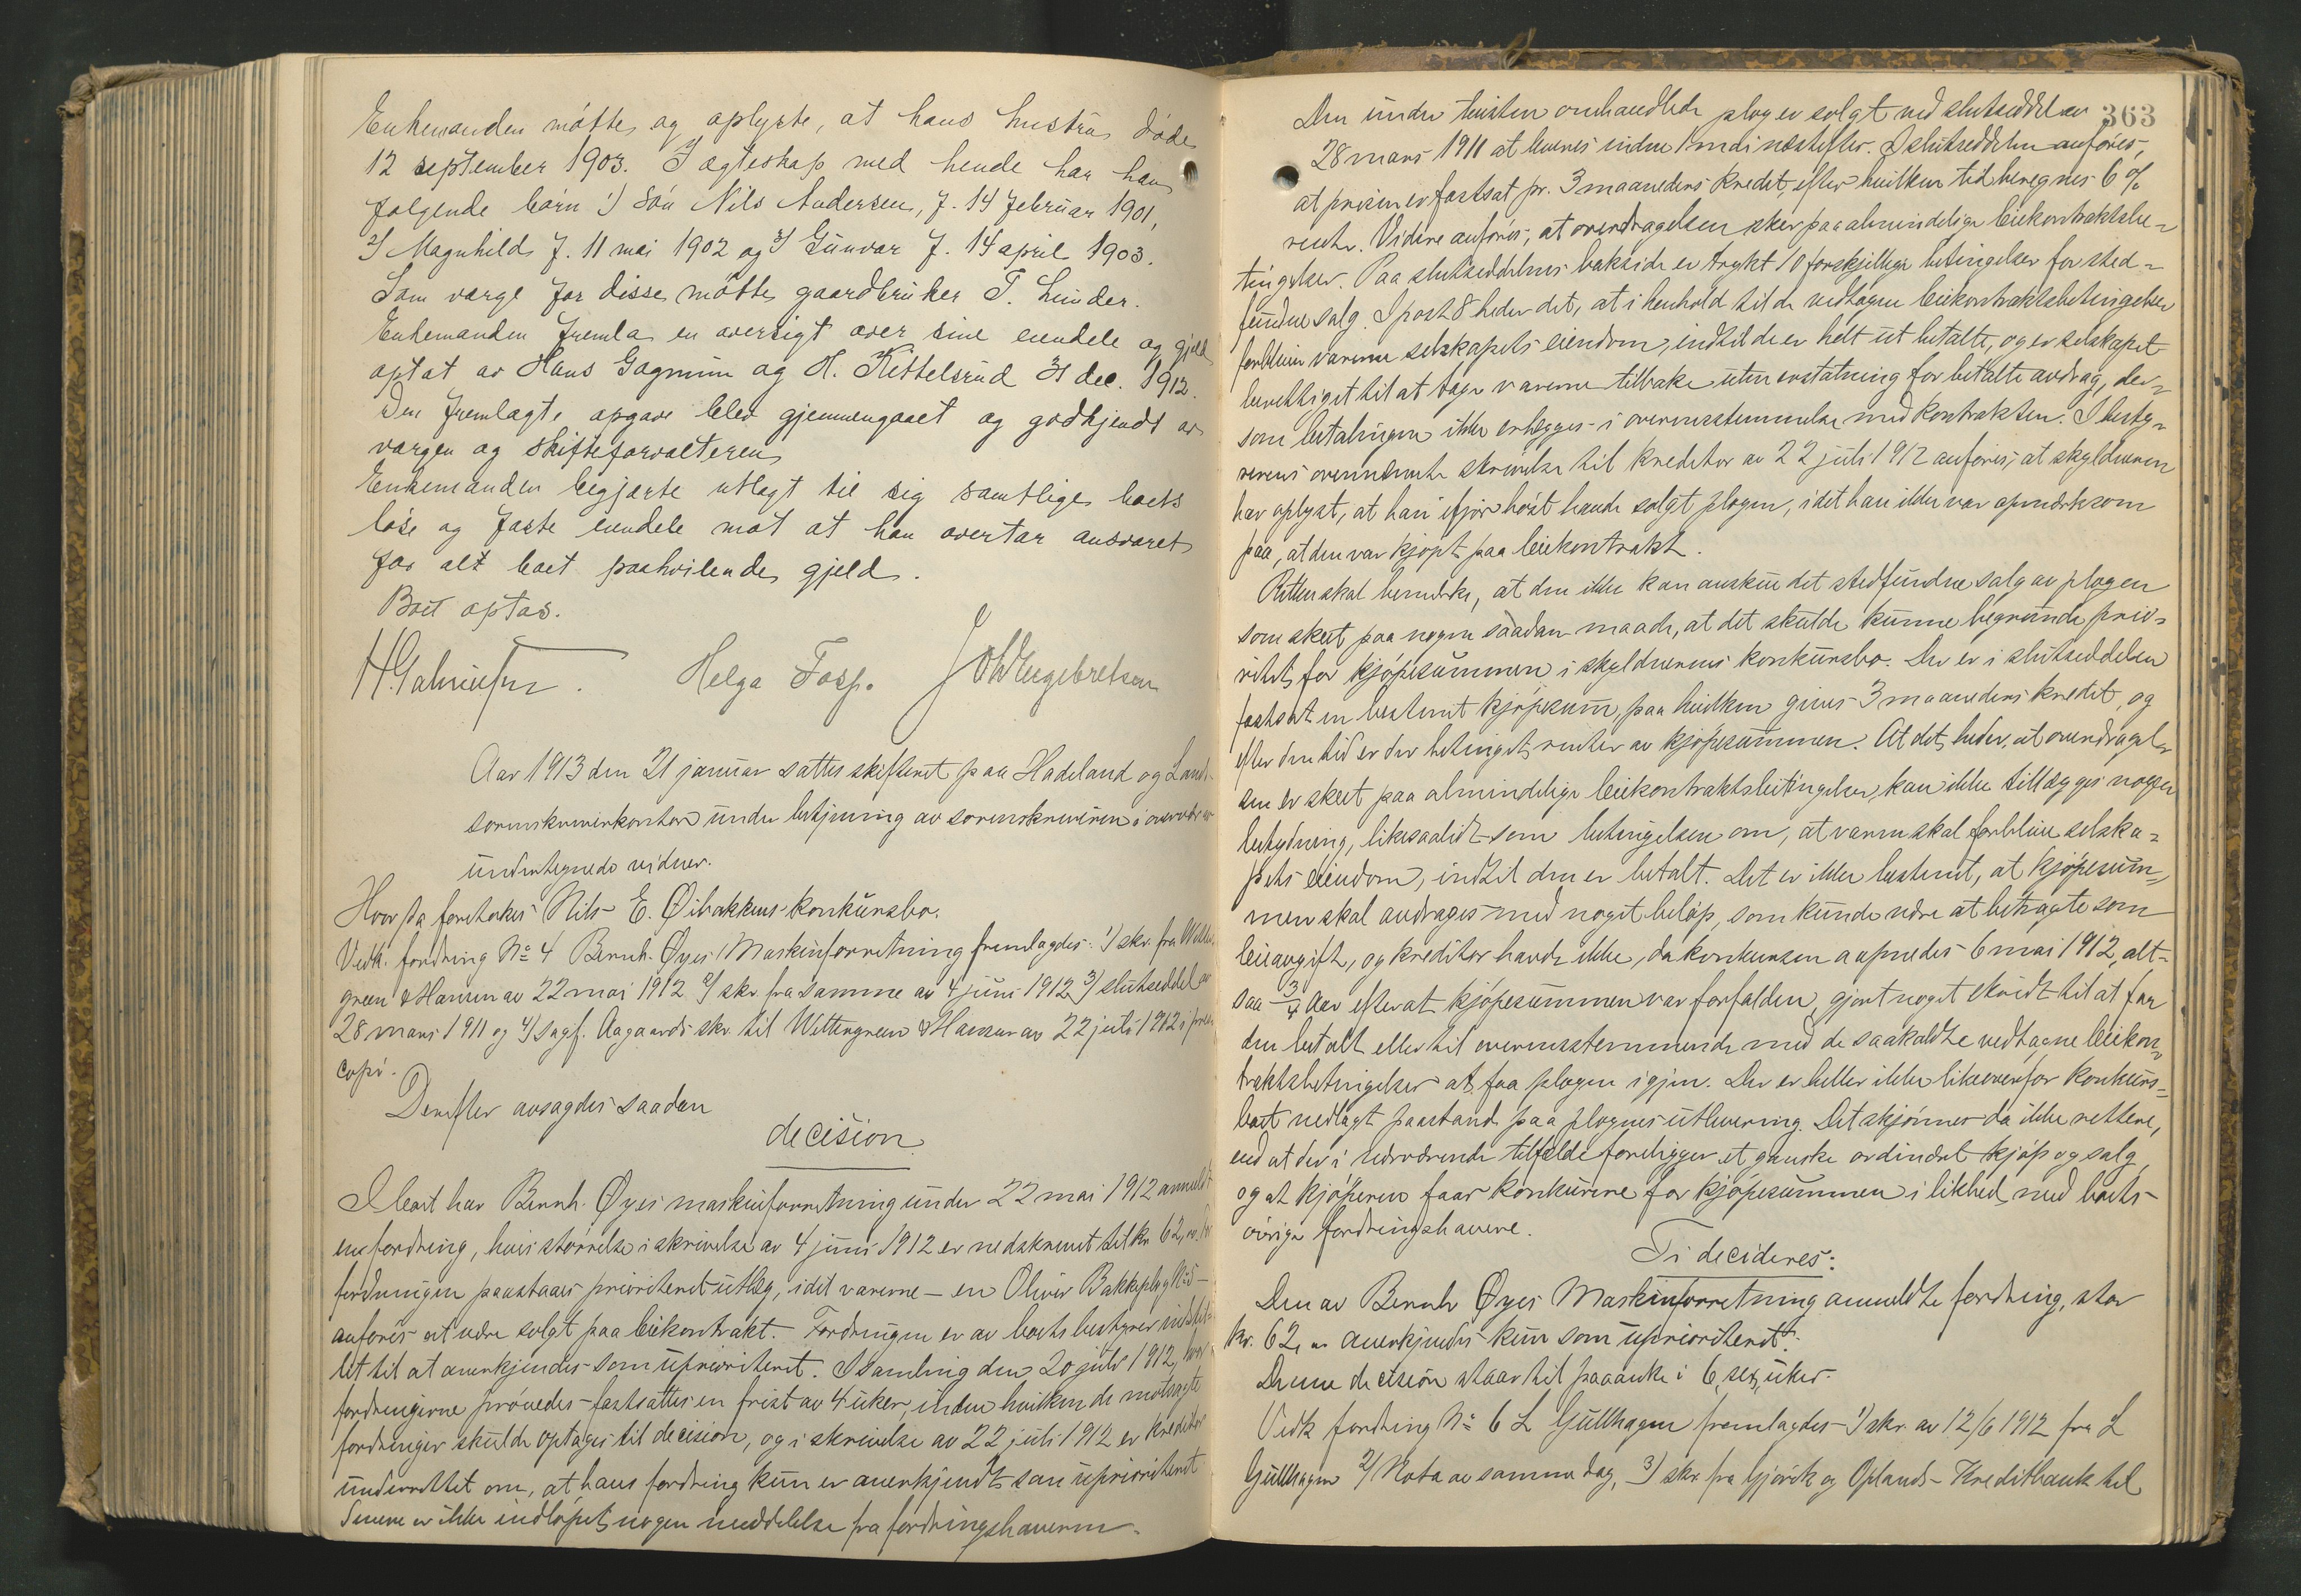 Enkemanden møtte og oplyste, at hans hustru døde
12 september 1903. I ægteskap med hende har han
følgende børn 1) Søn Nils Andersen, f. 14 februar 1901,
2) Magnhild f. 11 mai 1902 og 3) Gunvor f. 14 april 1903.
Som værge for disse møtte gaardbruker T. Linder.
Enkemanden fremla en oversigt over sine eiendele og gjeld
optat av Hans Gagnum og H. Kittelsrud 31 dec. 1912.
Den fremlagte opgave blev gjennemgaaet og godkjendt av
værgen og skifteforvalteren
Enkemanden begjærte utlagt til sig samtlige boets
løse og faste eiendele mot at han overtar ansvaret
for alt boet paahvilende gjeld.
Boet optas.
Helga Fosp. Joh Engebretsen
Aar 1913 den 21 januar sattes skifteret paa Hadeland og Land
sorenskriverkontor under betjening av sorenskriveren i overvær av
undertegnede vidner.
Hvor da foretokes Nils E. Øibakkens konkursbo.
Vedk. fordring No 4 Bernh. Øyes Maskinforretning fremlagdes: 1) skr. fra
green & Hansen av 22 mai 1912 2) skr. fra samme av 4 juni 1912 3) slutseddel av
28 mars 1911 og 4) sagf. Aagaards skr. til Wettergreen & Hansen av 22 juli 1912 i
copi.
Derefter avsagdes saadan
decision
I boet har Bernh. Øyes maskinforretning under 22 mai 1912 anmeldt
en fordring, hvis størrelse i skrivelse av 4 juni 1912 er nedskrevet til kr 62,00. For
fordringen paastaaes prioriteret utlæg, idet varerne – en Oliver Bakkeplog No 5 –
anføres at være solgt paa leiekontrakt. Fordringen er av boets bestyrer indstil-
let til at anerkjendes som uprioriteret. I samling den 20 juli 1912, hvor
fordringerne prøvedes – fastsattes en frist av 4 uker, inden hvilken de motsagte
fordringer skulde optages til decision, og i skrivelse av 22 juli 1912 er kreditor
underrettet om, at hans fordring kun er anerkjendt som uprioriteret
Senere er ikke indløpet nogen meddelelse fra fordringshaveren.
363
Den under tvisten omhandlede plog er solgt ved slutseddel av
28 mars 1911 at leveres inden 1 mai næstefter. I slutseddelen anføres,
at prisen er fastsat pr. 3 maaneders kredit, efter hvilken tid beregnes 6 %
rente. Videre anføres, at overdragelsen sker paa almindelige leiekontraktsbe-
tingelser. Paa slutseddelens bakside er trykt 10 forskjellige betingelser for sted-
fundne salg. I post 8 heder det, at i henhold til de vedtagne leiekontraktsbetingelser
forbliver varerne selskapets eiendom, indtil de er helt ut betalte, og er selskapet
berettiget til at tage varerne tilbake uten erstatning for betalte avdrag, der-
som betalingen ikke erlægges i overensstemmelse med kontrakten. I besty-
rerens ovennævnte skrivelse til kreditor av 22 juli 1912 anføres, at skyldneren
har oplyst, at han ifjor høst havde solgt plogen, idet han ikke var opmerksom
paa, at den var kjøpt paa leiekontrakt.
Retten skal bemerke, at den ikke kan anskue det stedfundne salg av plogen
som skeet paa nogen saadan maade, at det skulde kunne begrunde prio-
ritet for kjøpesummen i skyldnerens konkursbo. Der er i slutseddelen
fastsat en bestemt kjøpesum, paa hvilken gives 3 maaneders kredit, og
efter den tid er der betinget renter av kjøpesummen. At det heder, at overdragel-
sen er skeet paa almindelige leiekontraktsbetingelser, kan ikke tillægges nogen
betydning, likesaalidt som betingelsen om, at varen skal forblive selska-
pets eiendom, indtil den er betalt. Det er ikke bestemt, at kjøpesum-
men skal avdrages med noget beløp, som kunde være at betragte som
leieavgift, og kreditor havde ikke, da konkursen aapnedes 6 mai 1912, alt-
saa 3/4 aar efter at kjøpesummen var forfalden, gjort noget skridt til at faa
den betalt eller til overensstemmende med de saakaldte vedtagne leiekon-
traktsbetingelser at faa plogen igjen. Der er heller ikke likeoverfor konkurs-
boet nedlagt paastand paa plogens utlevering. Det skjønnes da ikke rettere,
end at der i nærværende tilfælde foreligger et ganske ordinært kjøp og salg,
og at kjøperen faar konkurere for kjøpesummen i likhed med boets
øvrige fordringshavere.
Ti decideres:
Den av Bernh Øyes Maskinforretning anmeldte fordring, stor
kr. 62,00 anerkjendes kun som uprioriteret.
Denne decision staar til paaanke i 6, sex, uker.
Vedk fordring No 6 L Gullhagen fremlagdes 1) skr. av 12/6 1912 fra L
Gullhagen 2) Nota av samme dag, 3) skr. fra Gjøvik og Oplands Kreditbank til